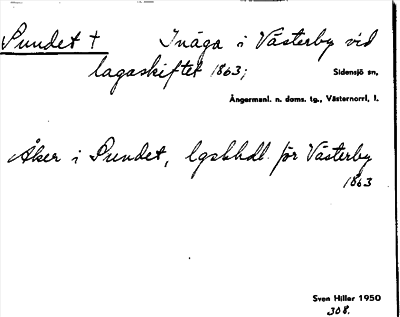 Sundet † Inäga i Västerby vid
lagaskiftet 1863;
Sidensjö sn,
Ångermanl. n. doms. tg., Västernorrl, l.
Åker i Sundet, lgskhdl. för Västerby
1863
Sven Hiller 1950
308.